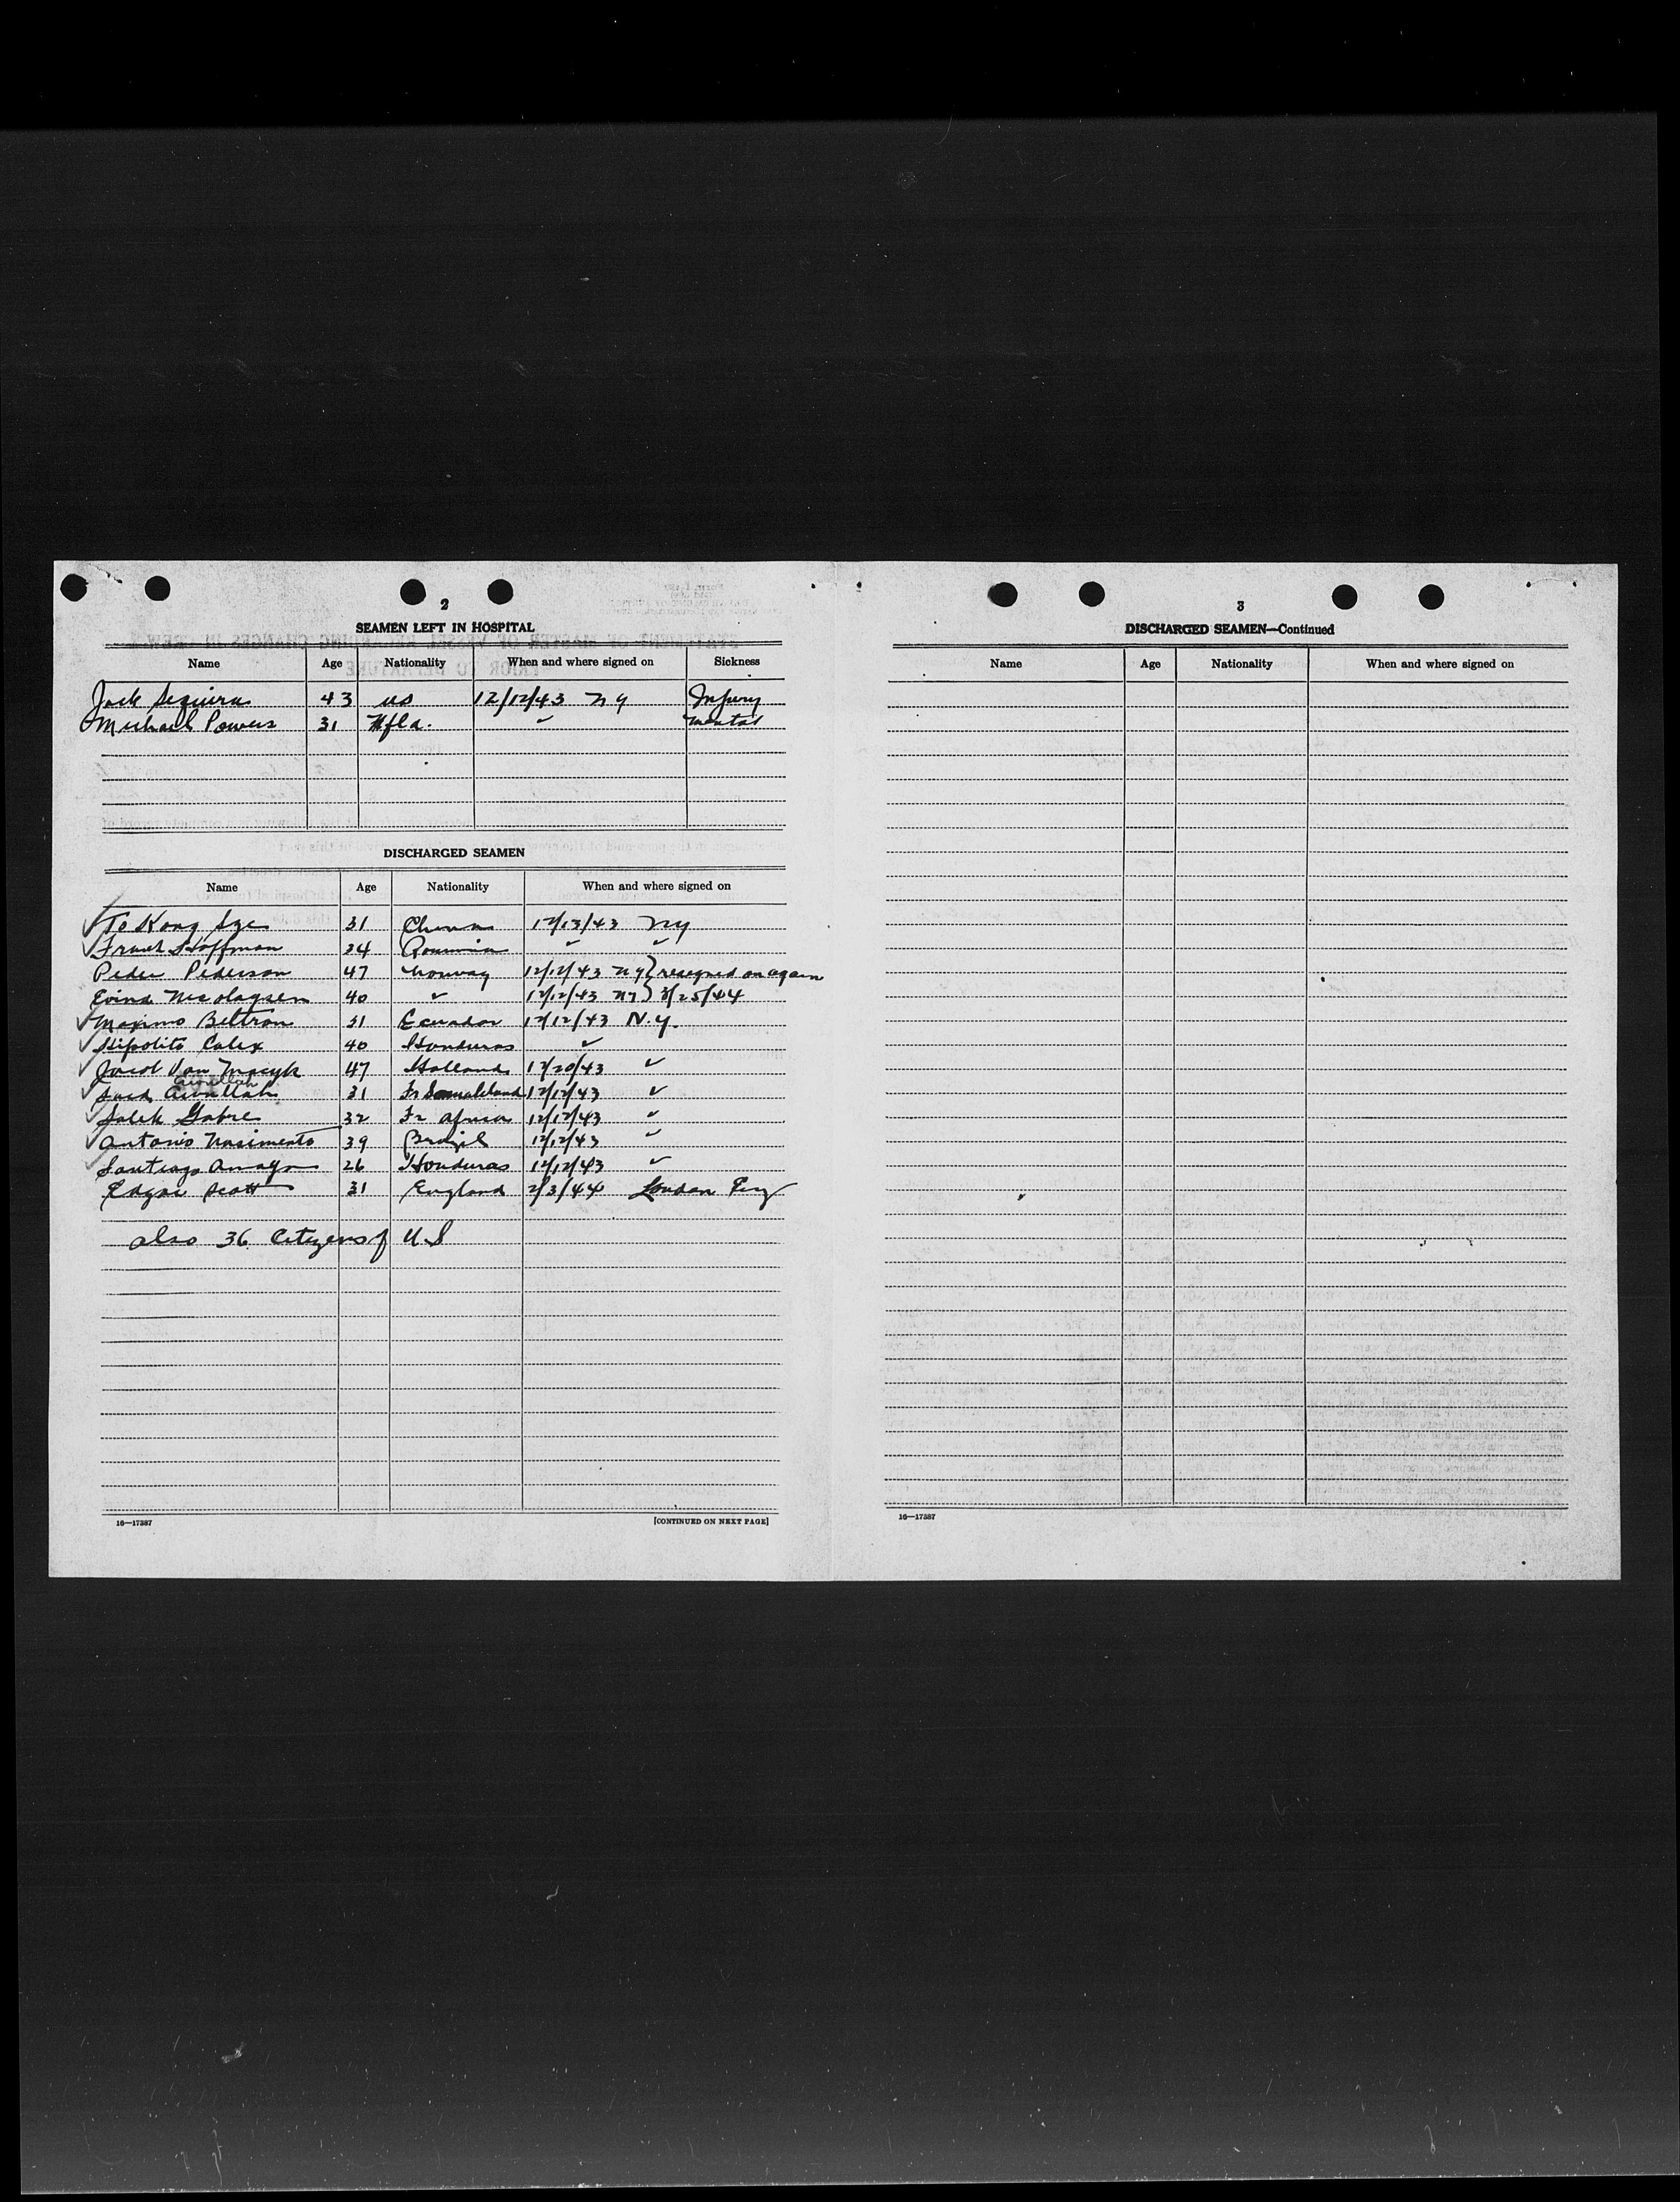 2
SEAMEN LEFT IN HOSPITAL
Name Age Nationality When and where signed on Sickness
Jack Sequira 43 US 12/12/43 NY Injury
Michael Powers 31 Nfld. " mental
DISCHARGED SEAMEN
Name Age Nationality When and where signed on
✓ To Kong Sze 31 China 12/13/43 NY
✓ Frank Hoffman 34 Roumania " "
Peder Pederson 47 Norway 12/12/43 NY } resigned on again
Eivind Nicolaysen 40 " 12/12/43 NY } 3/25/44
✓ Maximo Beltran 31 Ecuador 12/12/43 N.Y.
✓ Hipolito Calix 40 Honduras "
✓ Jacob Van 47 Holland 12/20/43 "
✓ Said 31 Fr Somaliland 12/12/43 "
✓ Saleh Gabre 32 Fr Africa 12/12/43 "
✓ Antonio Nasimento 39 Brazil 12/12/43 "
✓ Santiago Amaya 26 Honduras 12/12/43 "
Edgar Scott 31 England 2/3/44 London
also 36 Citizens of U.S
16—17387 [CONTINUED ON NEXT PAGE]
3
DISCHARGED SEAMEN—Continued
Name Age Nationality When and where signed on
16—17387